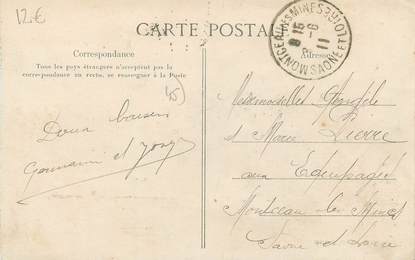 12€
CARTE POSTALE
Correspondance
Tous les pays étrangers n'acceptent pas la
correspondance au recto, se renseigner à la Poste
Adresse
MONTCEAU-LES-MINES
SAONE ET LOIRE
8 15
11
Doux baisers
Germaine et
Mesdemoiselles
et Marie Pierre
aux Equipages
Montceau les Mines
Saône et Loire